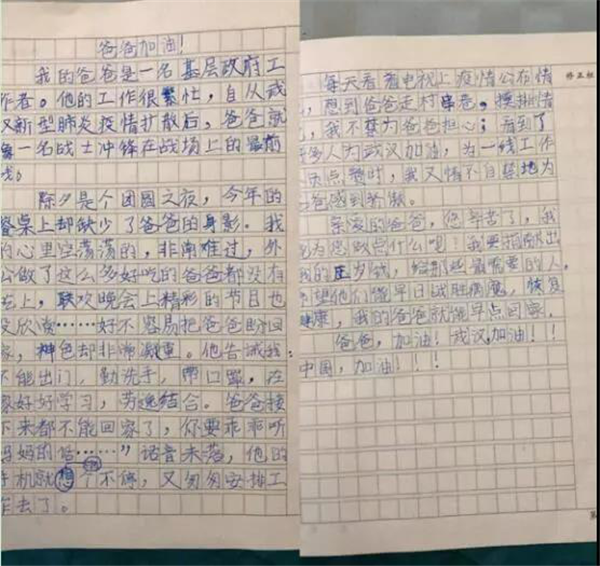 爸爸加油!
我的爸爸是一名基层政府工
作者。他的工作很繁忙,自从武
汉新型肺炎疫情扩散后,爸爸就
像一名战士冲锋在战场上的最前
线!
除夕是个团圆之夜,今年的
餐桌上却缺少了爸爸的身影。我
的心里空荡荡的,非常难过,外
公做了这么多好吃的爸爸都没有
吃上,联欢晚会上精彩的节目也
没欣赏……好不容易把爸爸盼回
家,神色却非常凝重。他告诫我:
不能出门,勤洗手,带口罩,在
家好好学习,劳逸结合。爸爸接
下来都不能回家了,你要乖乖听
妈妈的话……”话音未落,他的
手机就响个不停,又匆匆安排工
作去了。
每天看着电视上疫情公布情
想到爸爸走村串巷,摸排情
,我不禁为爸爸担心;看到了
许多人为武汉加油,为一线工作
人员点赞时,我又情不自禁地为
爸爸感到骄傲。
亲爱的爸爸,您辛苦了,我
能为您做点什么呢?我要捐献出
我的压岁钱,给那些最需要的人,
希望他们能早日战胜病魔,恢复
健康,我的爸爸就能早点回家。
爸爸,加油!武汉,加油!!
中国,加油!!!